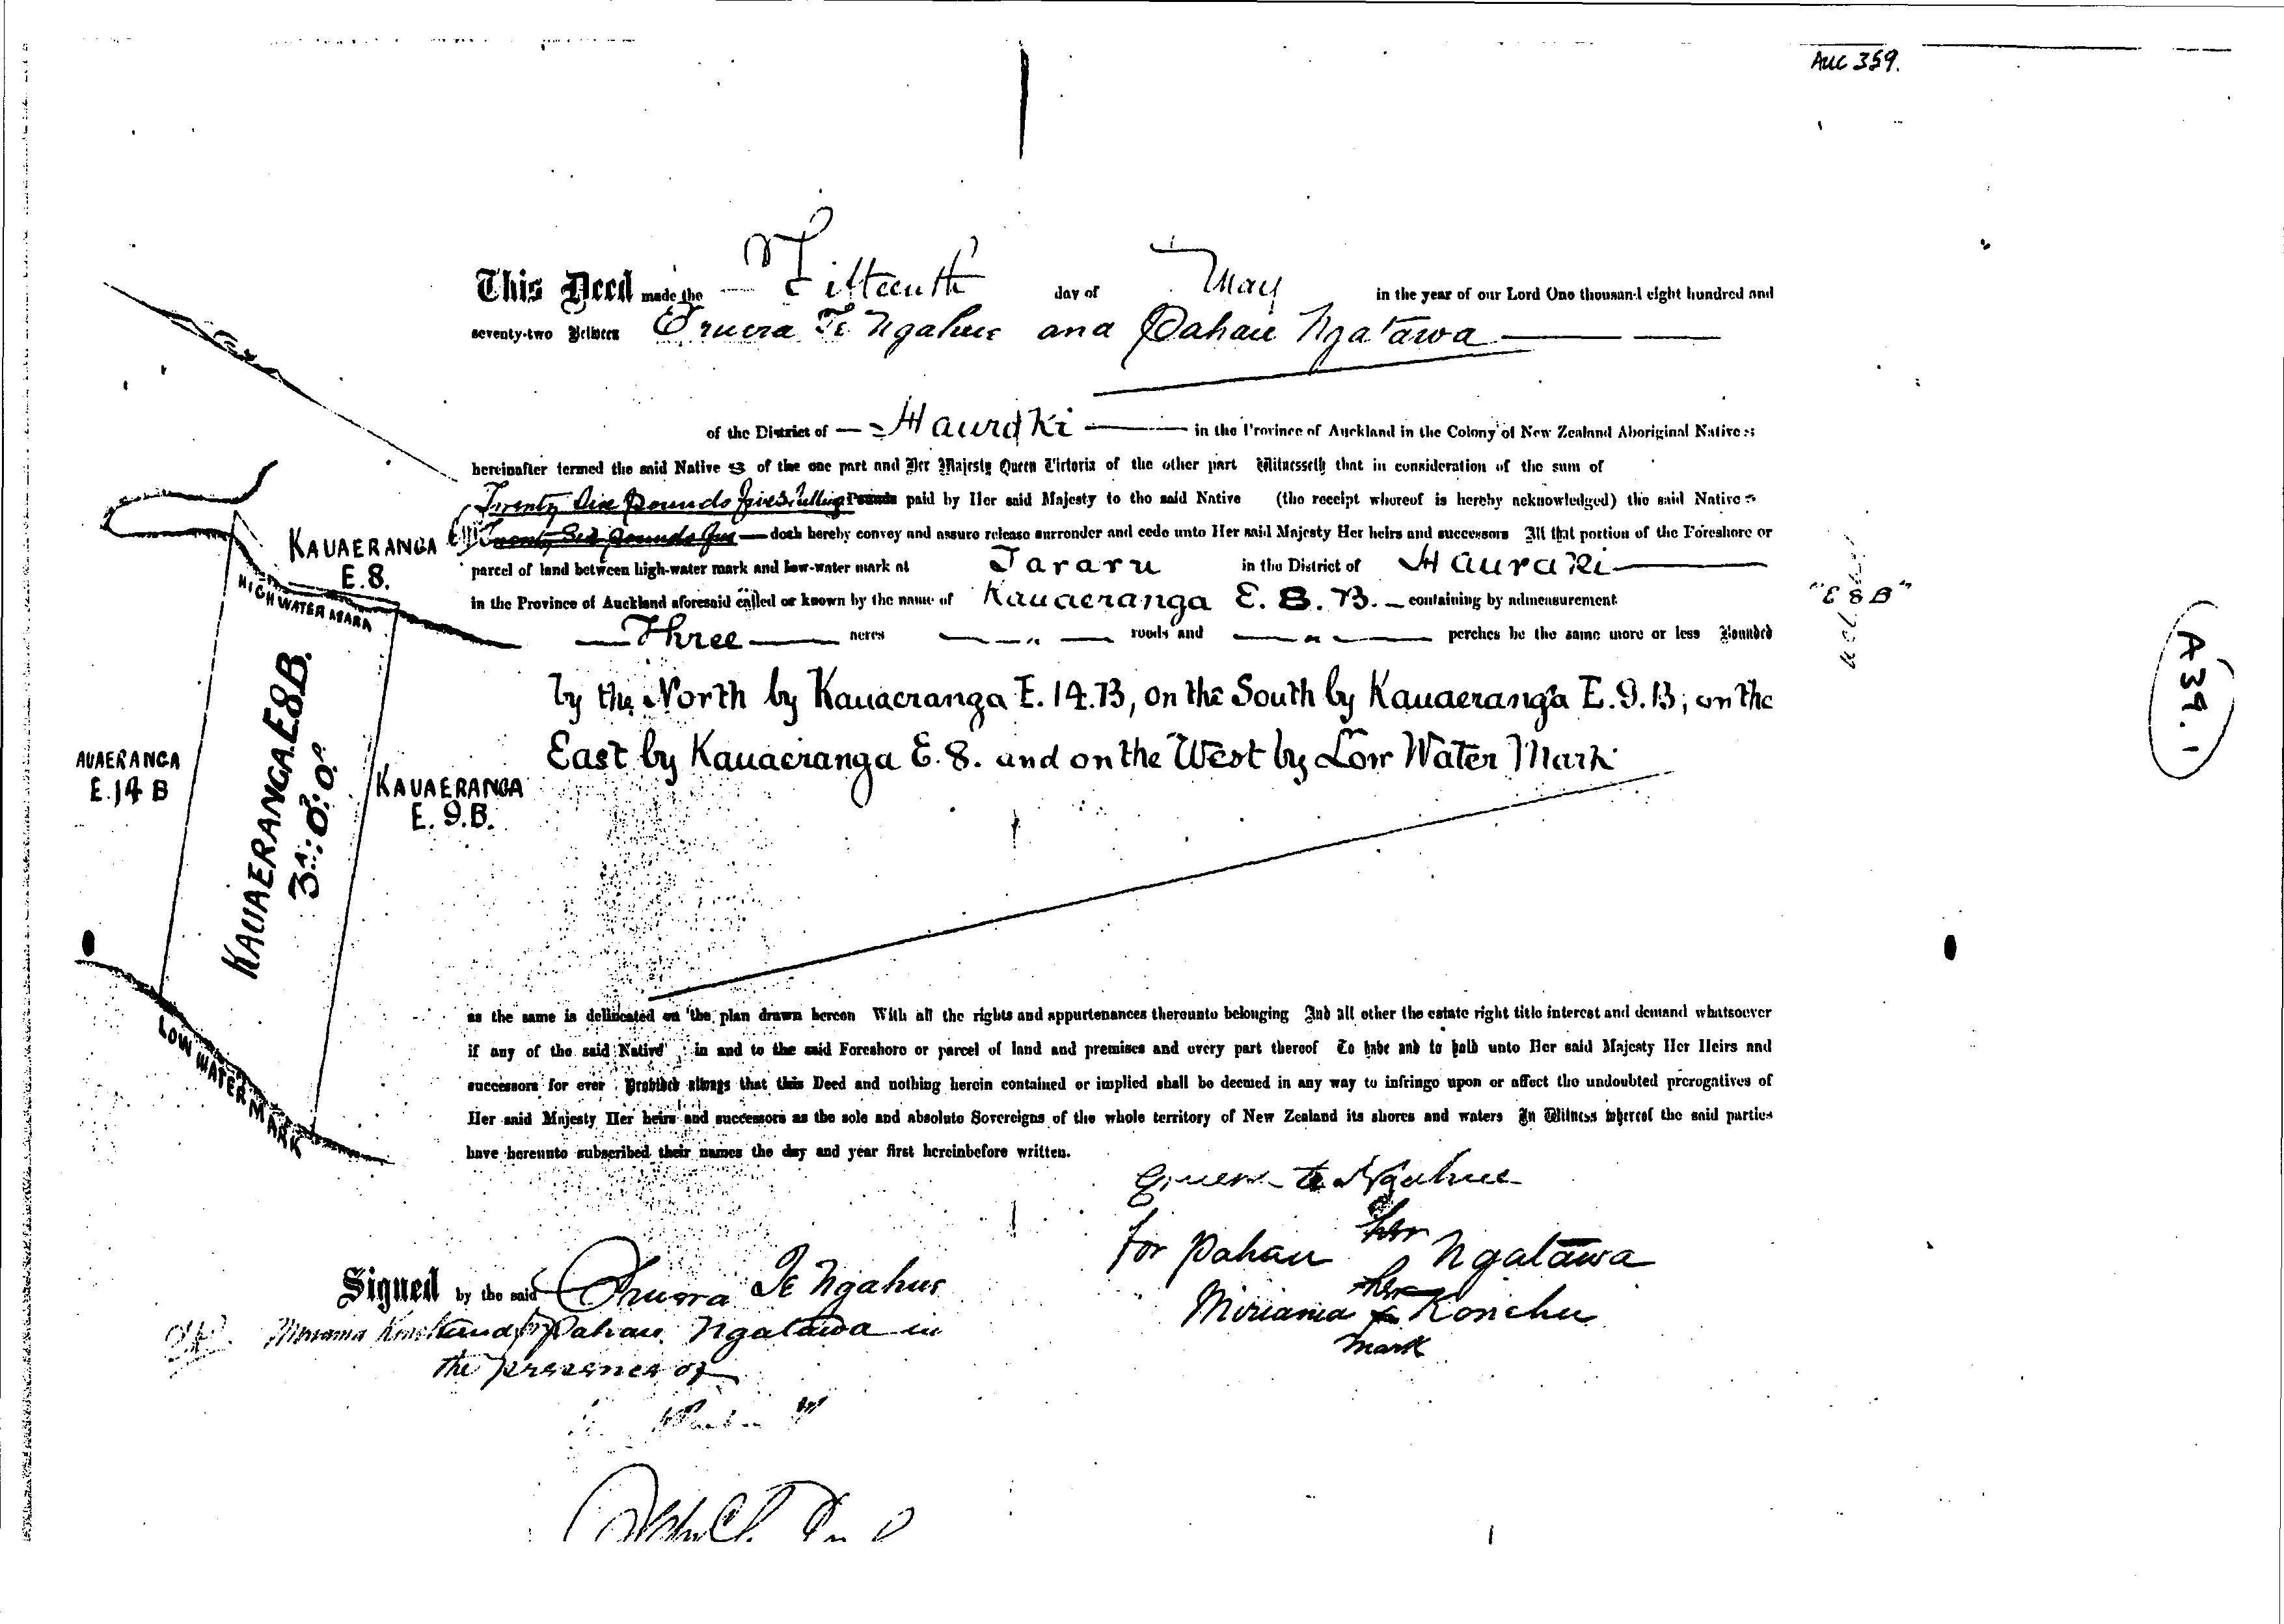 AUC 359.
This Deed made the Fifteenth day of May in the year of our Lord One thousand eight hundred and
seventy-two Between Eruera Te Ngahue and Pahau Ngatawa
of the District of Hauraki in the Province of Auckland in the Colony of New Zealand Aboriginal Natives
hereinafter termed the said Natives of the one part and Her Majesty Queen Victoria of the other part Witnesseth that in consideration of the sum of
Twenty five pounds five shillings Pounds paid by Her said Majesty to the said Native (the receipt whereof is hereby acknowledged) the said Natives
Twenty Six pounds five doth hereby convey and assure release surrender and cede unto Her said Majesty Her heirs and successors All that portion of the Foreshore or
parcel of land between high-water mark and low-water mark at Tararu in the District of Hauraki
in the Province of Auckland aforesaid called or known by the name of Kauaeranga E. 8. B. containing by admeasurement
Three acres " roods and " perches be the same more or less Bounded
by the North by Kauaeranga E. 14. B, on the South by Kauaeranga E. 9. B, on the
East by Kauaeranga E. 8. and on the West by Low Water Mark
"E 8 B"
A 39. 1
KAUAERANGA
E. 8.
HIGH WATER MARK
KAUAERANGA E8B.
3A: 0: 0P.
AUAERANGA
E. 14 B
KAUAERANGA
E. 9. B.
LOW WATER MARK
as the same is delineated on the plan drawn hereon With all the rights and appurtenances thereunto belonging And all other the estate right title interest and demand whatsoever
if any of the said Native in and to the said Foreshore or parcel of land and premises and every part thereof To have and to hold unto Her said Majesty Her Heirs and
successors for ever Provided always that this Deed and nothing herein contained or implied shall be deemed in any way to infringe upon or affect the undoubted prerogatives of
Her said Majesty Her heirs and successors as the sole and absolute Sovereigns of the whole territory of New Zealand its shores and waters In Witness whereof the said parties
have hereunto subscribed their names the day and year first hereinbefore written.
Eruera te Ngahue
for Pahau her Ngatawa
Miriama her x Konehu
mark
Signed by the said Eruera Te Ngahue
and for Pahau Ngatawa in
the presence of